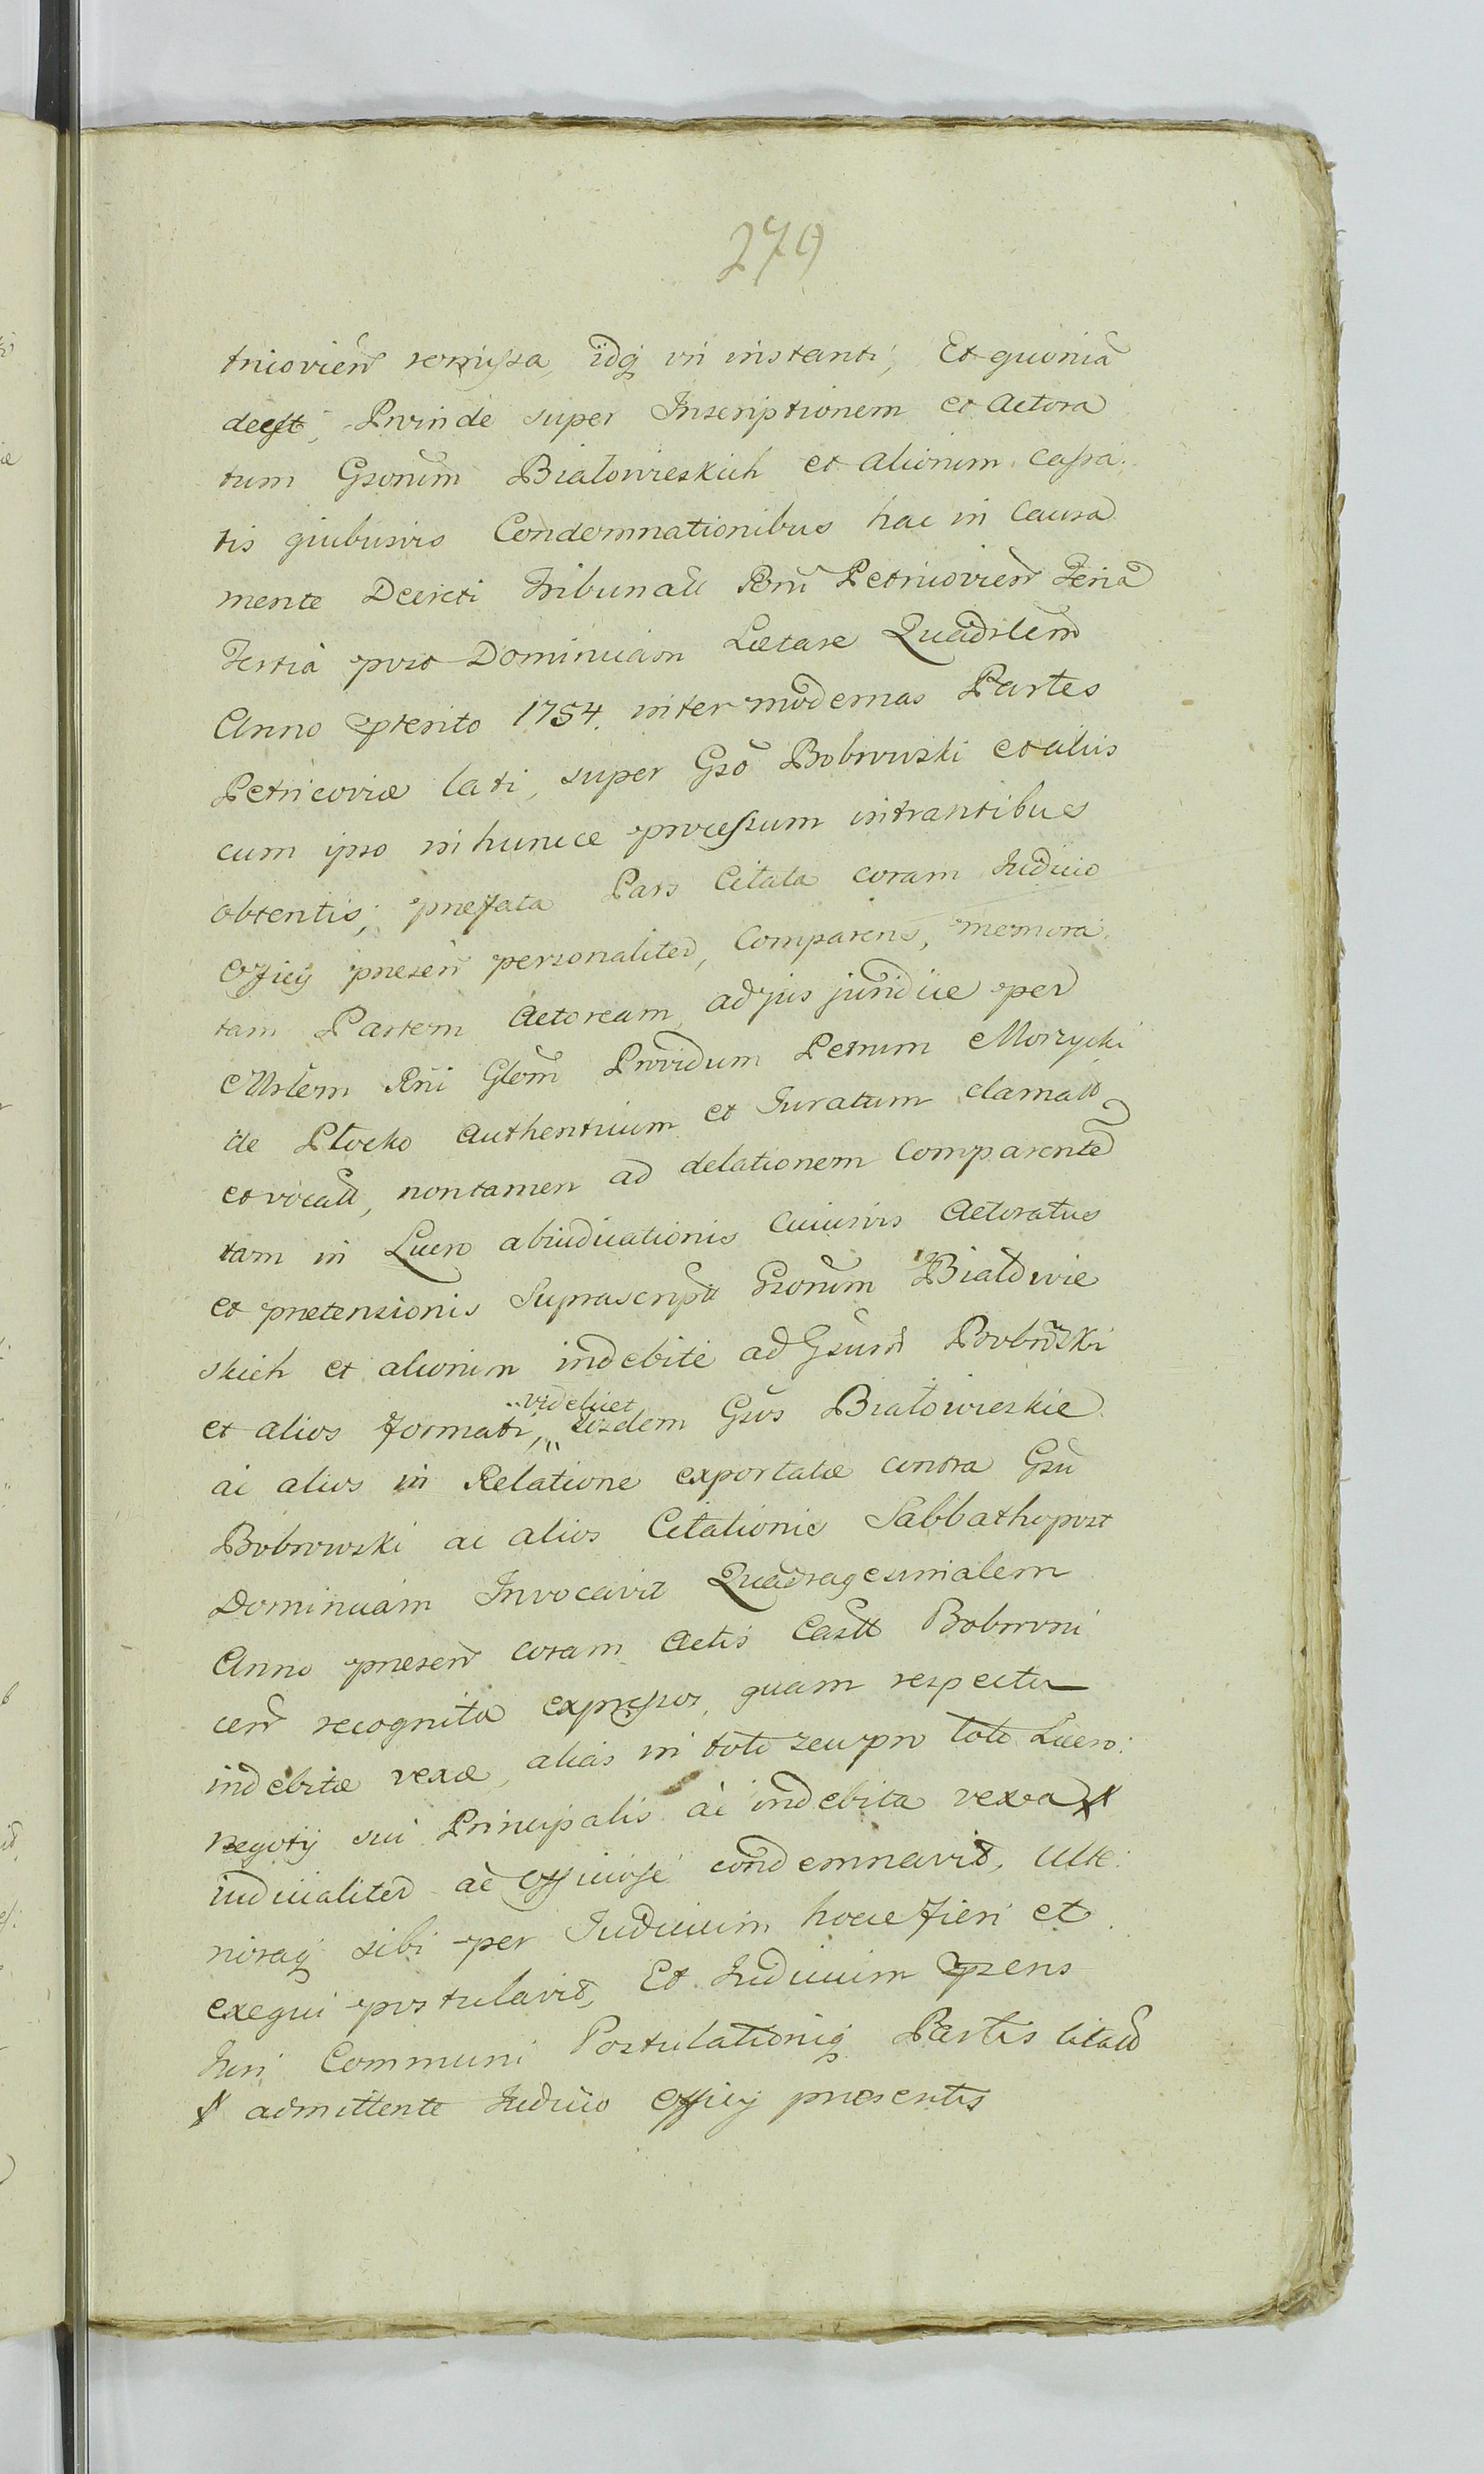 279
tricovien remissa, idq in instanti, Et quonia
deest, Proinde super Inscriptionem et Actora
tum Gsorum Białowieskich et aliorum cassa:
tis quibusvis Condemnationibus hac in Causa
mente Decreti Tribunall Rni Petricovien Feria
Tertia post Dominicam Lætare Quadrlem
Anno pterito 1754. inter modernas Partes
Petricoviæ lati, super Gso Bobrowski et aliis
cum ipso in hunce processum intrantibus
obtentis, præfata Pars Citata coram Judicio
Officij præsen personaliter Comparens, memora:
tam Partem Actoream ad jus juridice per
Mrlem Rni Glem Providum Petrum Morzycki
de Płocko Authenticum et Juratum clamatt
et vocatt, non tamen ad delationem Comparente
tam in Lucro abiudicationis cuiusvis Actoratus
et prætensionis Suprascriptt Gsorum Białowie
skich et aliorum indebite ad Gsum Bobrski
et alios formati, videlicet eosdem Gsos Białowieskie
ac alios in Relatione exportatæ contra Gsu
Bobrowski ac alios Citationis Sabbatho post
Dominicam Invocavit Quadragesimalem
Anno præsen coram Actis Castt Bobrovni
cen recognita expressos, quam respectu
indebitæ vexæ, alias in toto seu pro toto Lucro:
negotij sui Principalis ac indebita vexa
iudicialiter ac officiose condemnavit, Ulte:
rioraq sibi per Judicium hocce fieri et
exequi postulavit, Et Judicium psens
Juri Communi Postulationiq Partis Citatt
admittente Judicio Officij præsentis